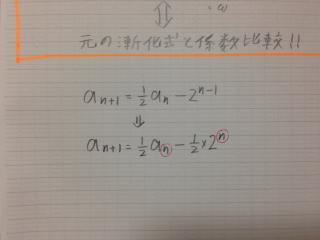 元の漸化式と係数比較!!
aₙ₊₁ = ½aₙ − 2ⁿ⁻¹
⇓
aₙ₊₁ = ½aₙ − ½×2ⁿ